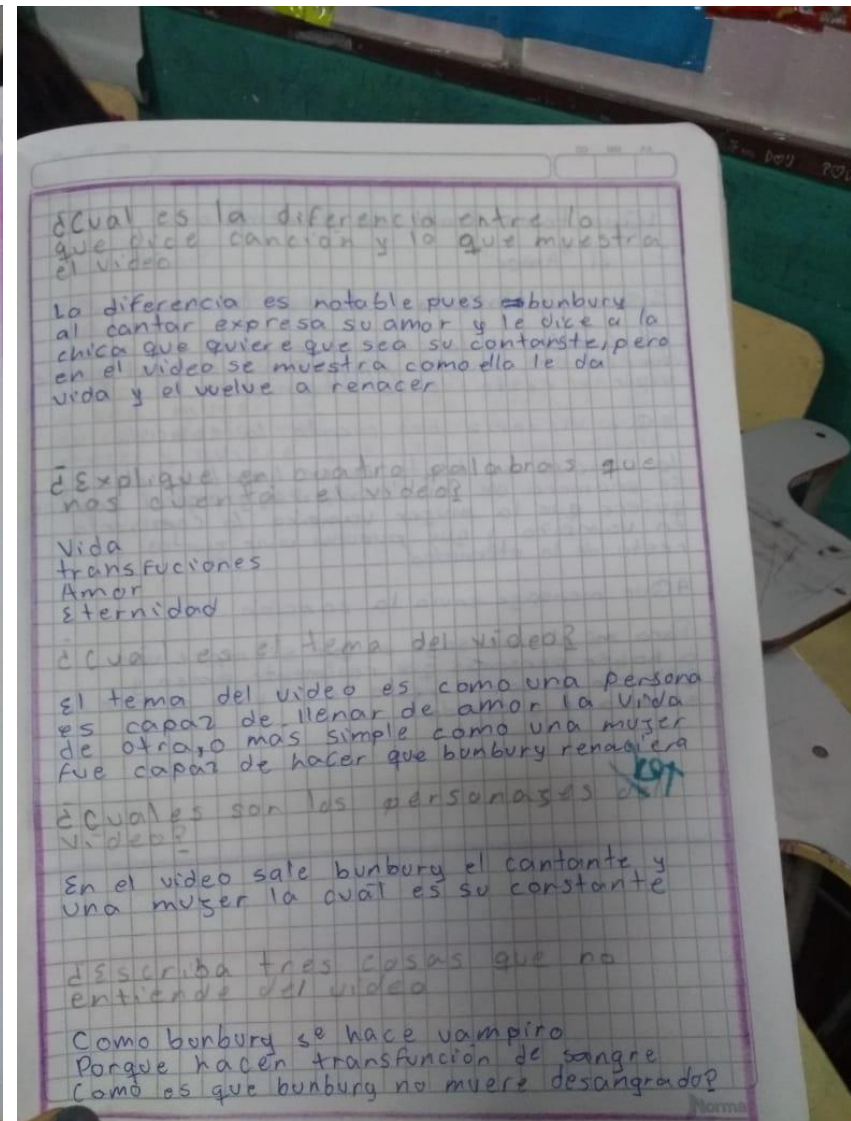 ¿Cual es la diferencia entre lo
que dice cancion y lo que muestra
el video
La diferencia es notable pues bunbury
al cantar expresa su amor y le dice a la
chica que quiere que sea su contanste, pero
en el video se muestra como ella le da
vida y el vuelve a renacer
¿Explique en cuatro palabras que
nos cuenta el video?
Vida
transfuciones
Amor
Eternidad
¿Cual es el tema del video?
El tema del video es como una persona
es capaz de llenar de amor la vida
de otra, o mas simple como una mujer
fue capaz de hacer que bunbury renaciera
¿Cuales son los personages del
video?
En el video sale bunbury el cantante y
una mujer la cual es su constante
¿Escriba tres cosas que no
entiende del video
Como bunbury se hace vampiro
Porque hacen transfunción de sangre
Como es que bunbury no muere desangrado?
Norma